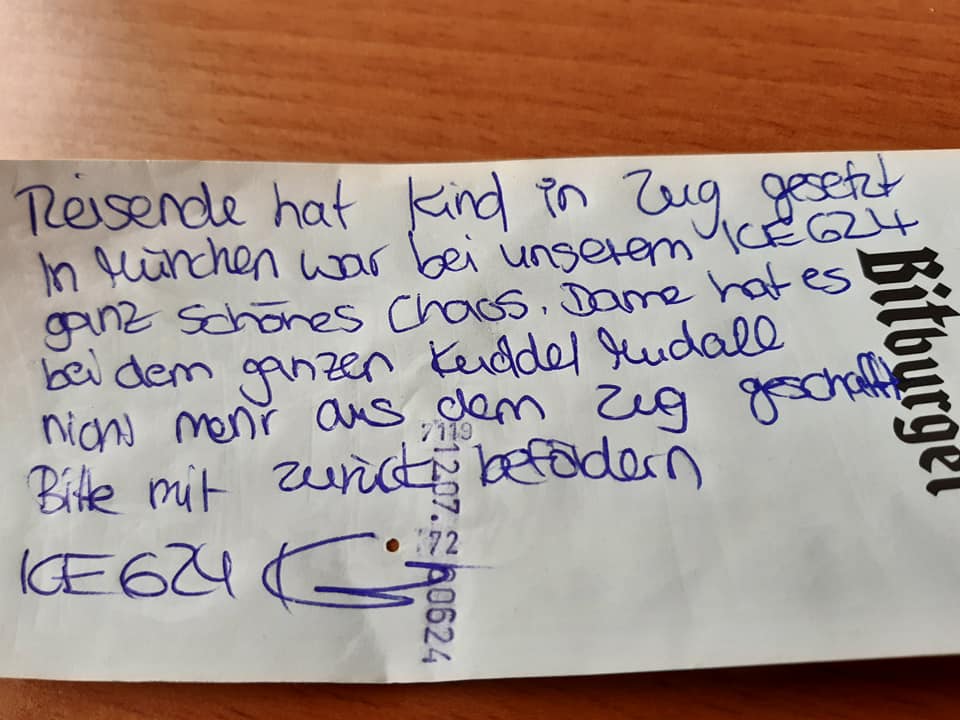 Reisende hat Kind in Zug gesetzt
In München war bei unserem ICE 624
ganz schönes Chaos. Dame hat es
bei dem ganzen Kuddel Mudall
nicht mehr aus dem Zug geschafft
Bitte mit zurück befödern
ICE 624
Bitburger
7119
1207.
72
60624